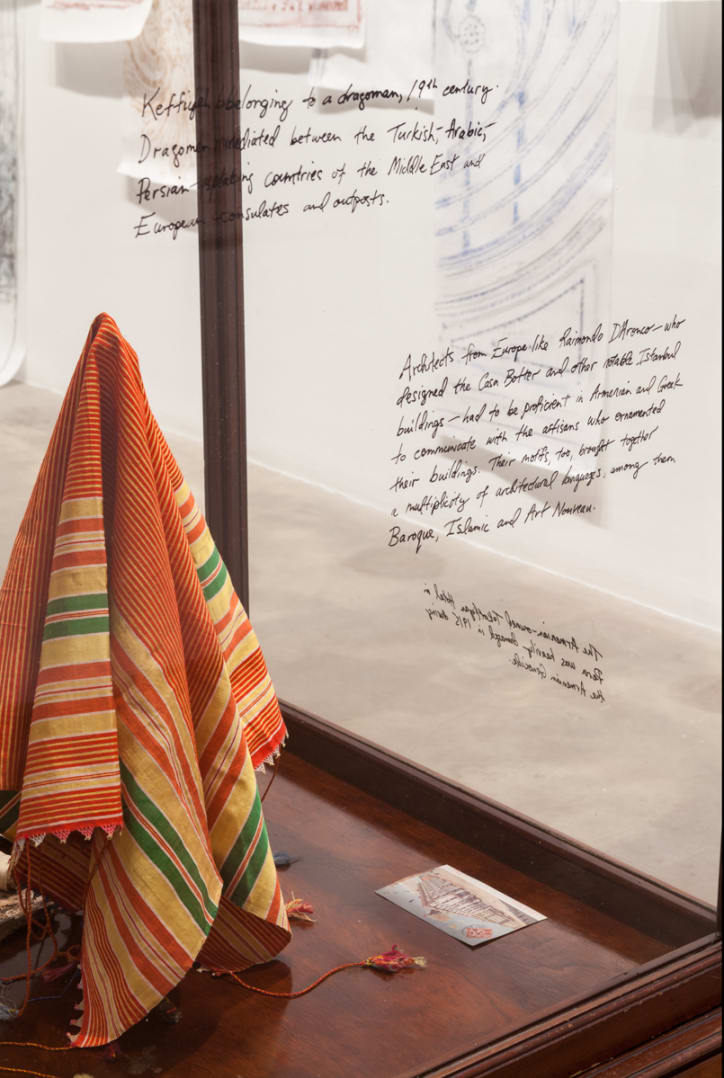 Keffiyeh belonging to a dragoman, 19th century.
Dragomen mediated between the Turkish-, Arabic-,
Persian-speaking countries of the Middle East and
European consulates and outposts.
Architects from Europe like Raimondo D'Aronco—who
designed the Casa Botter and other notable Istanbul
buildings—had to be proficient in Armenian and Greek
to communicate with the artisans who ornamented
their buildings. Their motifs, too, brought together
a multiplicity of architectural languages, among them
Baroque, Islamic and Art Nouveau.
The Armenian-owned Tokatliyan Hotel in
Pera was heavily damaged in 1915 during
the Armenian Genocide.